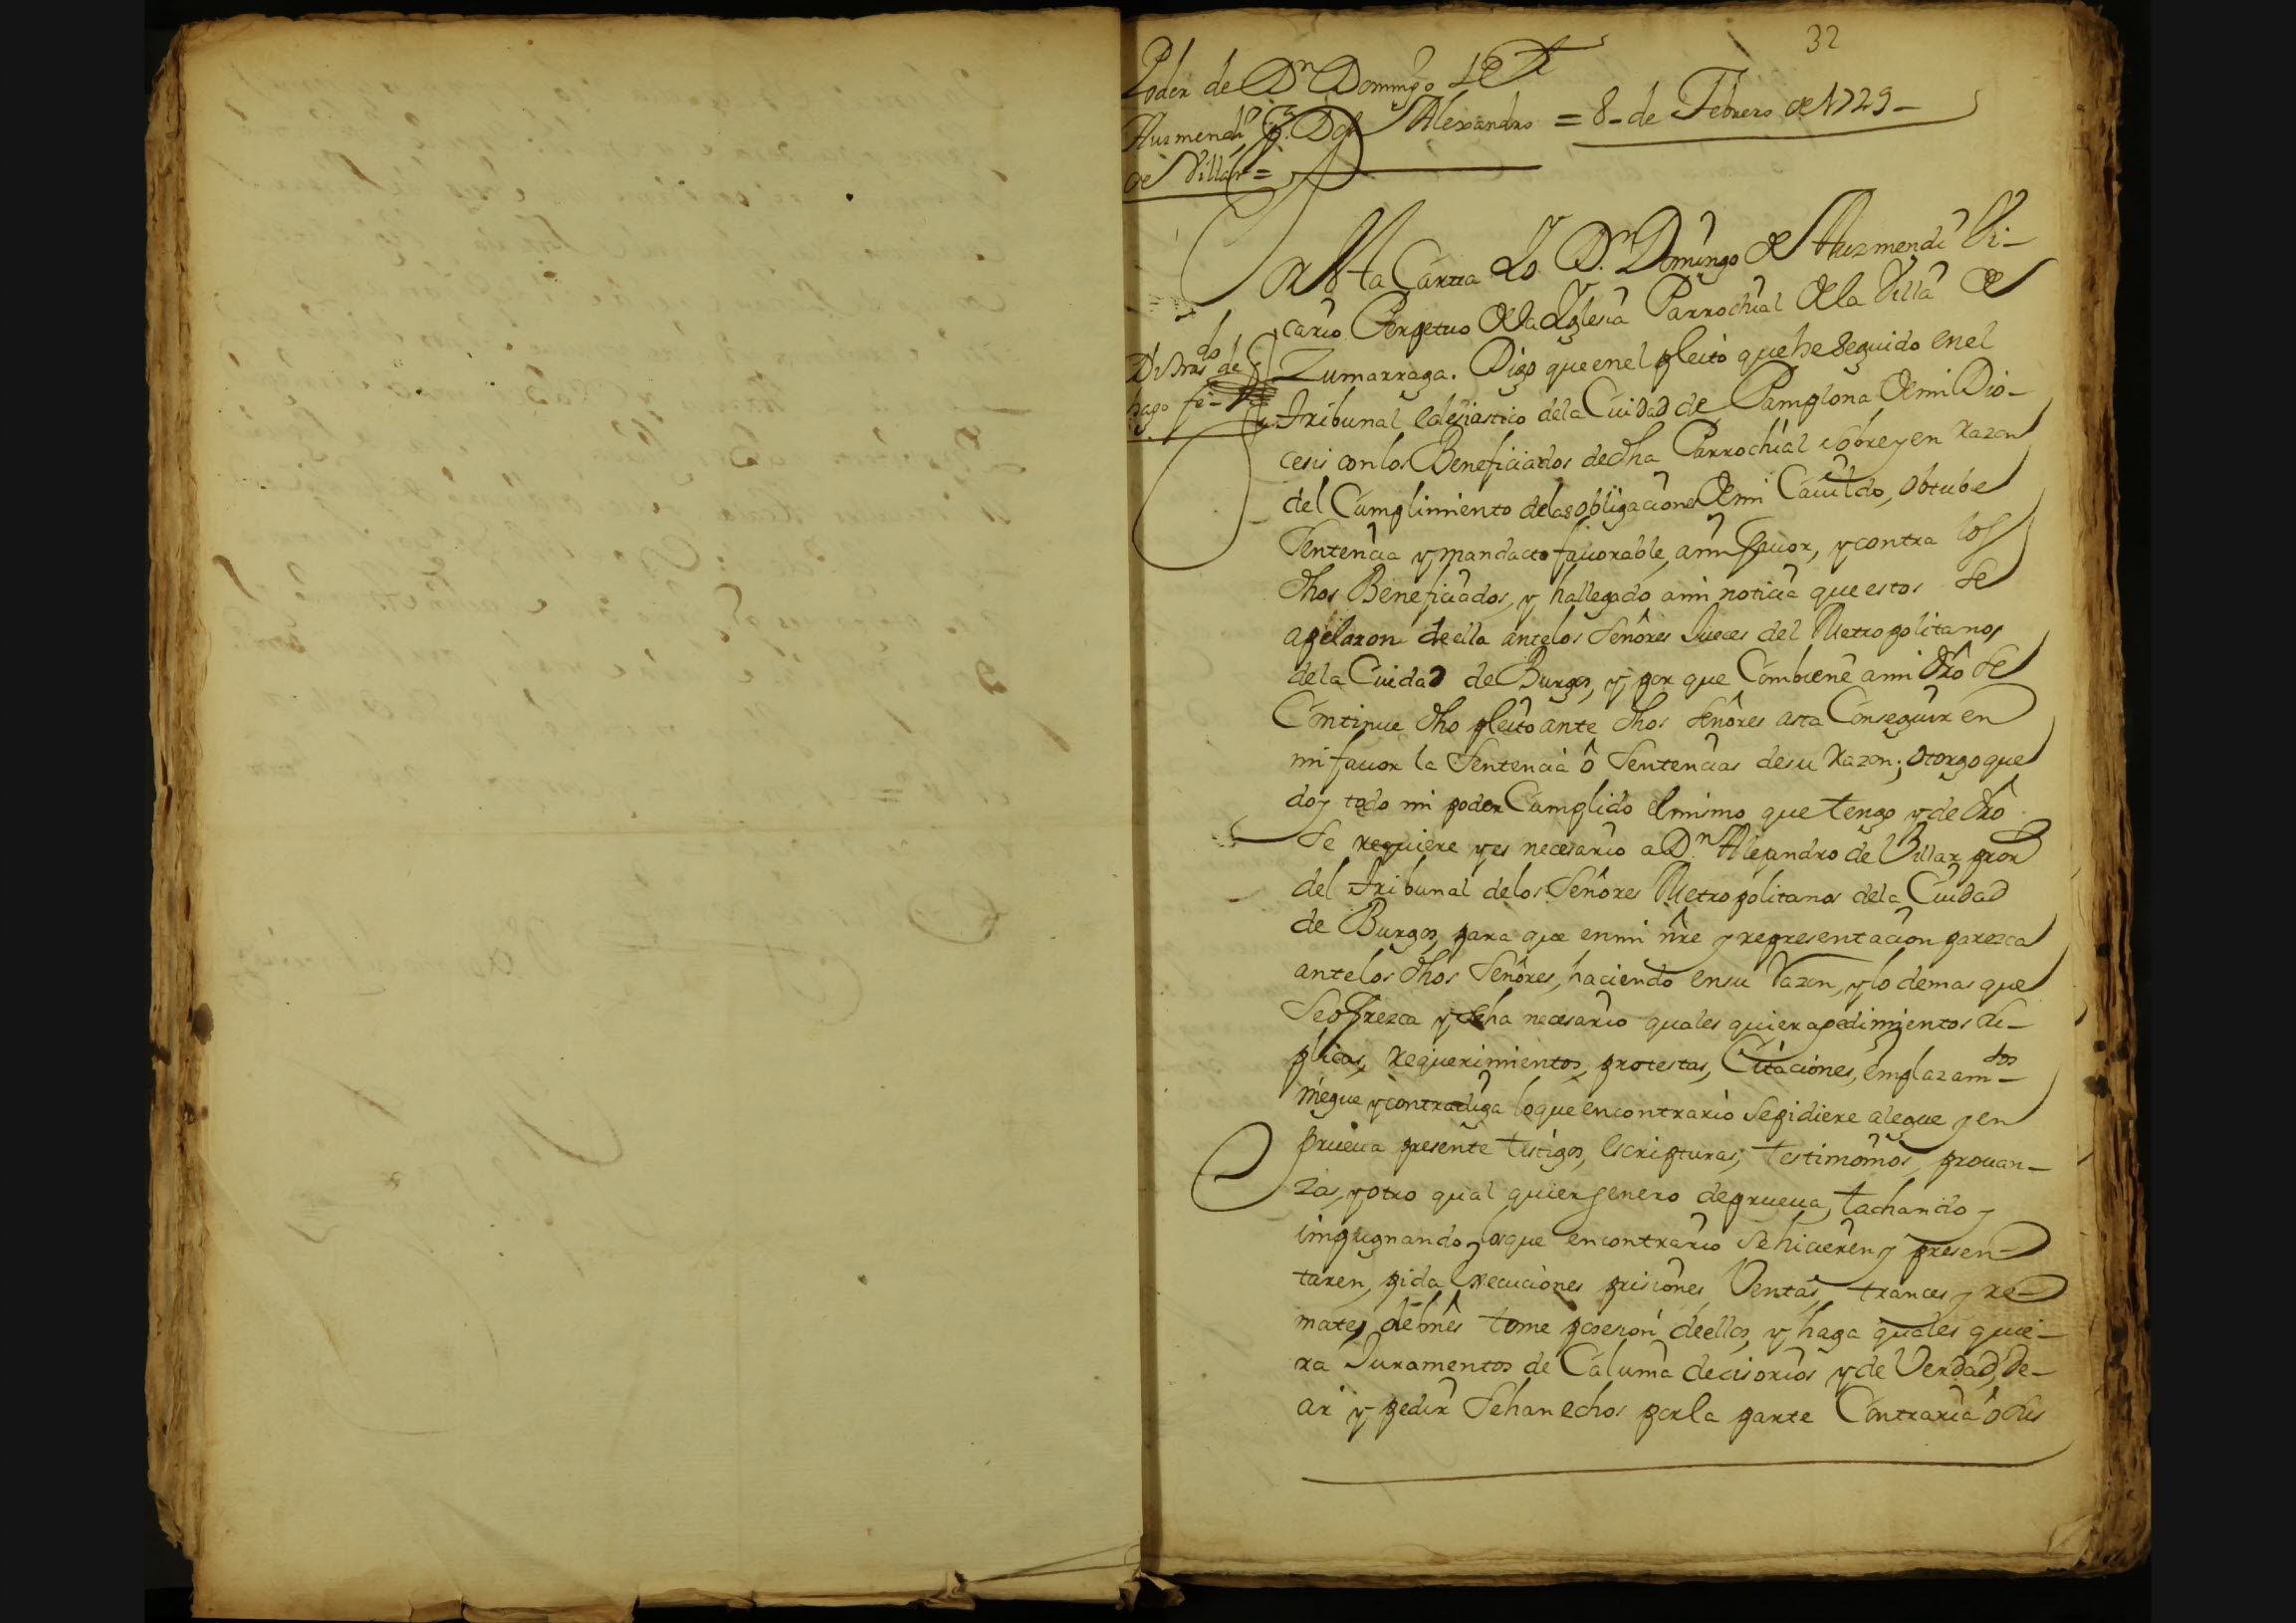 32
Poder de Dn Domingo de
Auzmendi, Dn Alexandro = 8 - de Febrero de 1729 -
de Villar =
Por esta Carta Yo Dn Domingo de Auzmendi Vi-
cario Perpetuo de la Yglesia Parrochial de la Villa de
Zumarraga. Digo que en el pleito que he seguido en el
hago fe -
Tribunal eclesiastico de la Ciudad de Pamplona de mi Dio-
cesis con los Beneficiados de dha Parrochial sobre y en razon
del Cumplimiento de las obligaciones de mi Cauildo, obtube
Sentencia y mandacto fauorable, a mi fauor, y contra los
dhos Beneficiados, y ha llegado a mi noticia que estos se
apelaron de ella ante los Señores Jueces del Metropolitano
de la Ciudad de Burgos, y por que Combiene a mi dro se
Continue dho pleito ante dhos Señores asta Conseguir en
mi fauor la Sentencia ô Sentencias de su razon; otorgo que
doy todo mi poder Cumplido el mismo que tengo y de dro
se requiere y es necesario a Dn Alejandro de Villar pror
del Tribunal de los Señores Metropolitanos de la Ciudad
de Burgos, para que en mi nre y representacion parezca
ante los dhos Señores, haciendo en su razon, y lo demas que
se ofrezca y seha necesario quales quiera pedimientos su-
plicas, requerimientos, protestas, Citaciones, emplazamtos
niegue y contradiga lo que en contrario se pidiere alegue y en
prueua presente testigos, escripturas, testimonios, prouan-
zas, y otro qual quier genero de prueua, tachando y
impugnando los que en contrario se hicieren y presen-
taren, pida execuciones prisiones, Ventas, trances y re-
mates de bnes tome posesion de ellos, y haga quales quie-
ra Juramentos de Calumnia decisorios y de Verdad, de-
cir y pedir se han echos por la parte Contraria ô sus